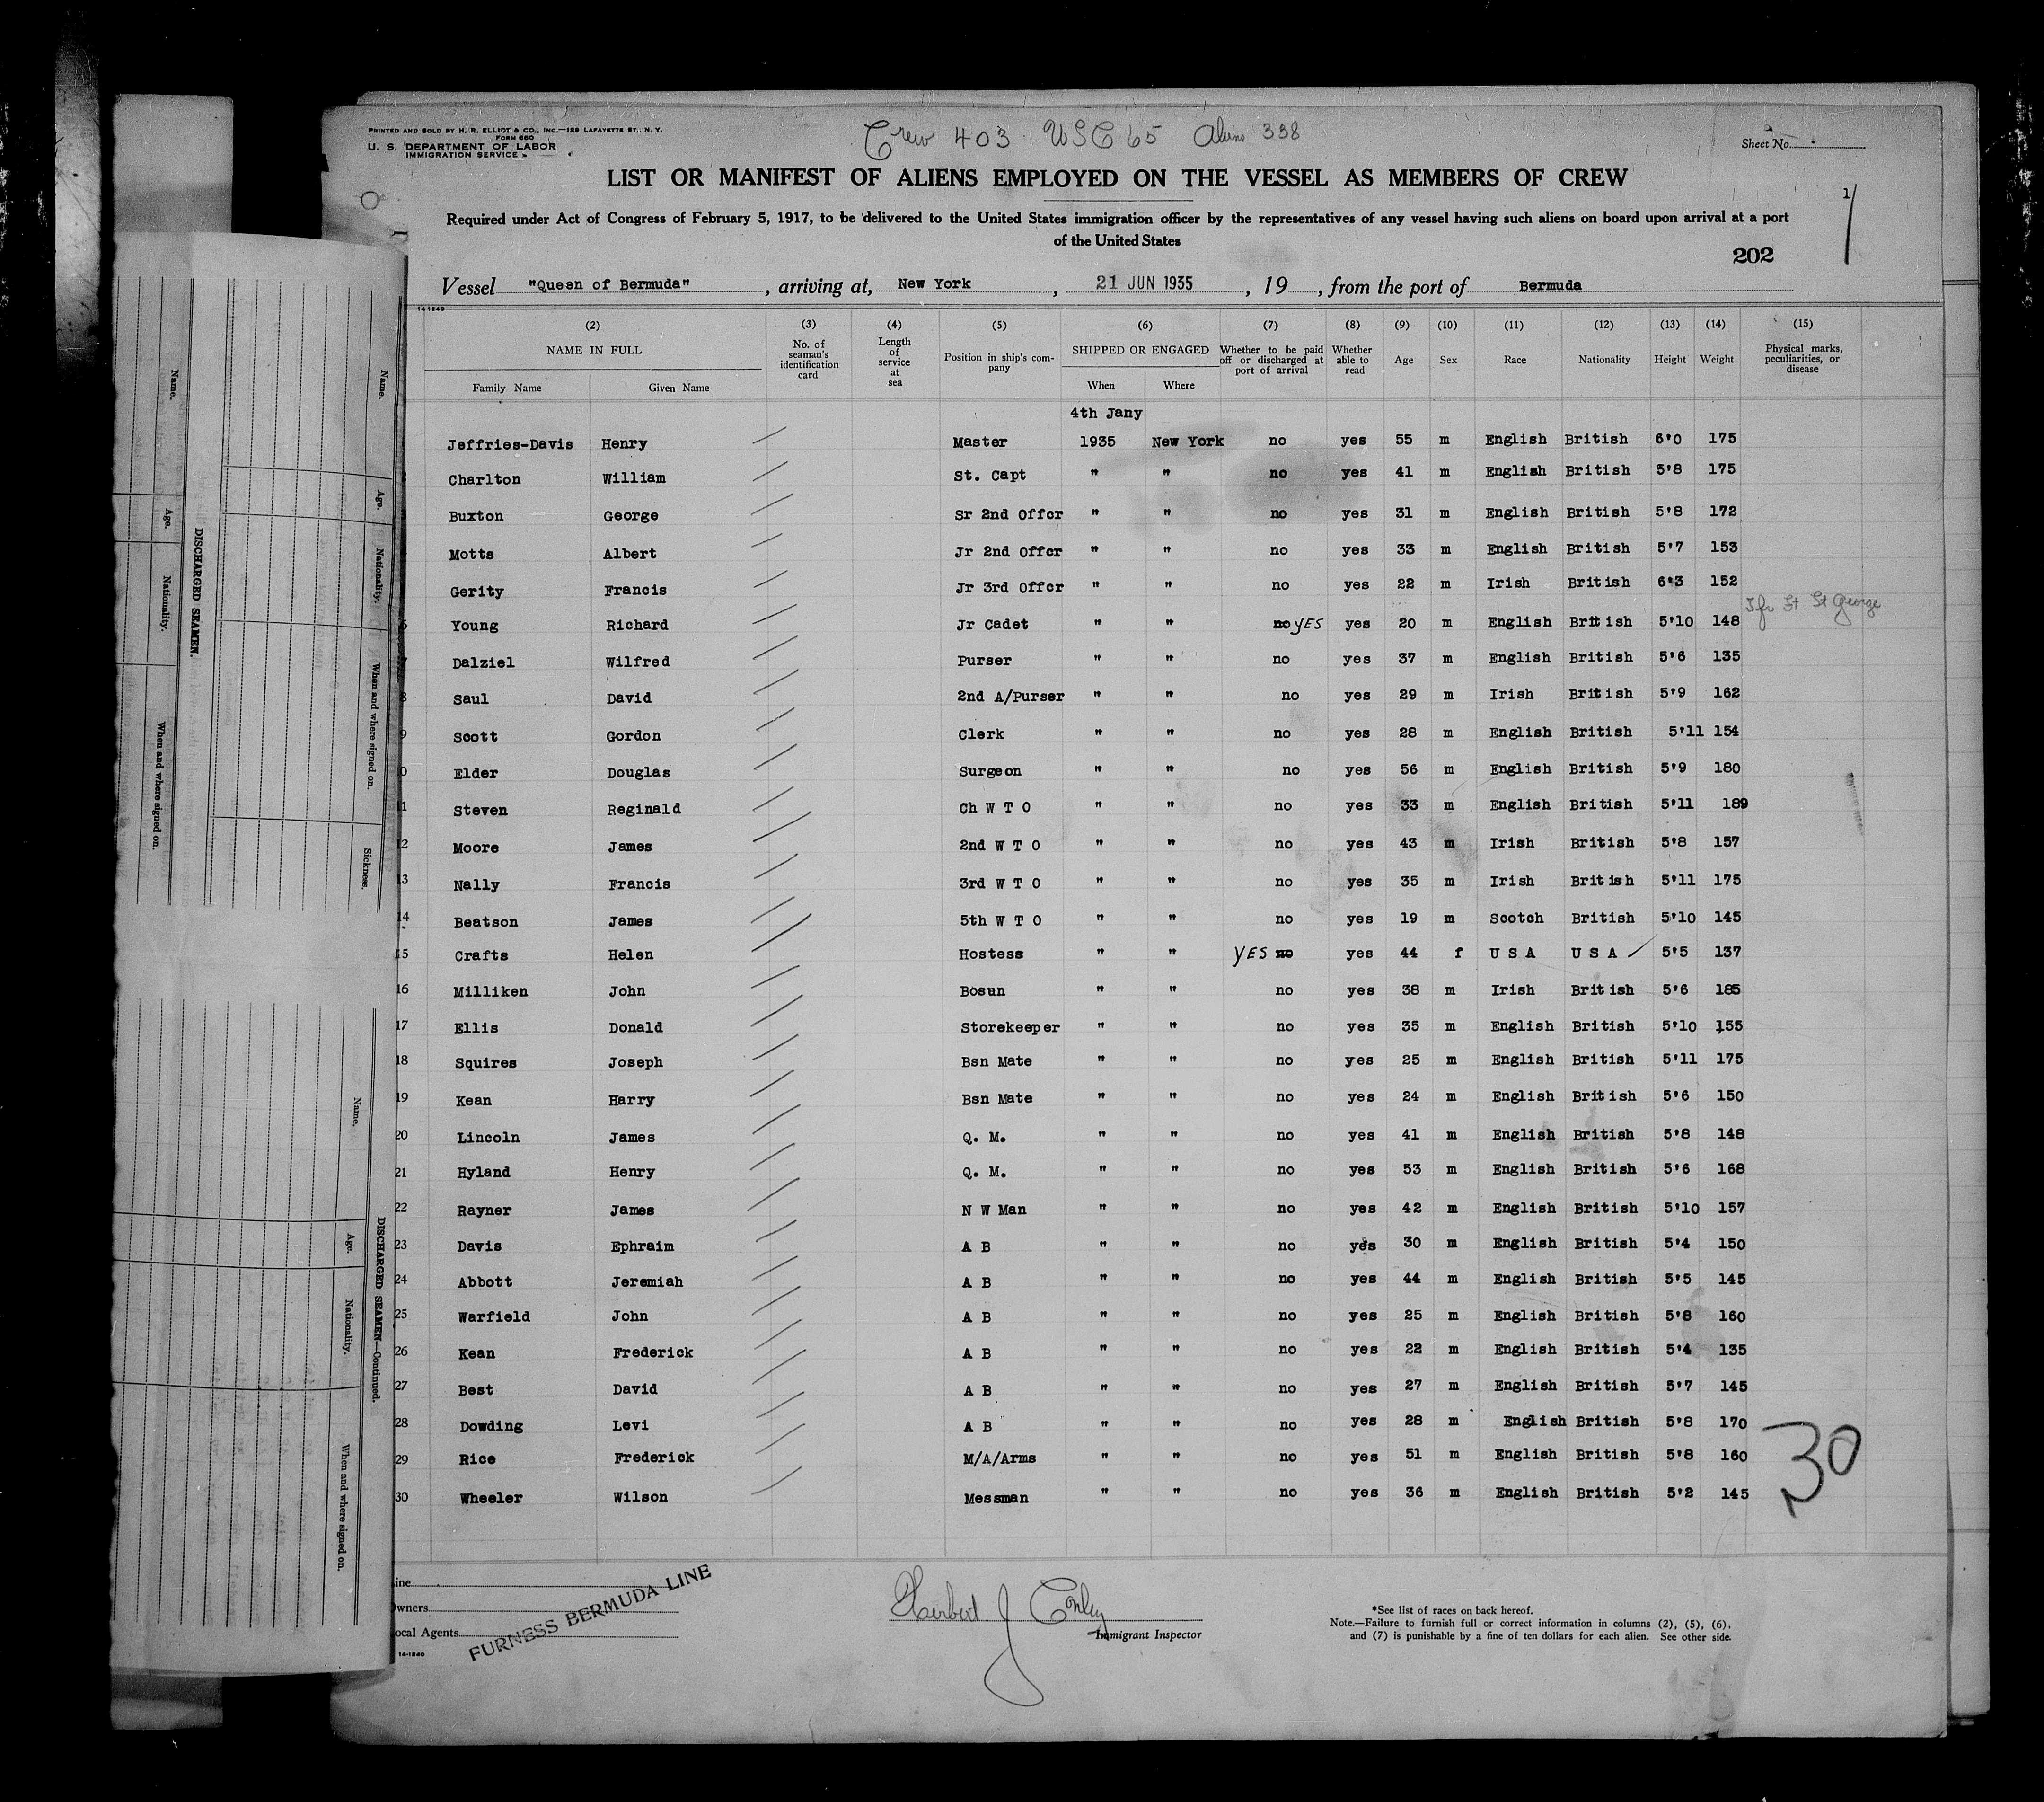 PRINTED AND SOLD BY H. R. ELLIOT & CO., INC.—129 LAFAYETTE ST., N. Y.
FORM 680
U. S. DEPARTMENT OF LABOR
IMMIGRATION SERVICE
Crew 403 USC 65 Aliens 338
Sheet No.
LIST OR MANIFEST OF ALIENS EMPLOYED ON THE VESSEL AS MEMBERS OF CREW
1
Required under Act of Congress of February 5, 1917, to be delivered to the United States immigration officer by the representatives of any vessel having such aliens on board upon arrival at a port
of the United States
202
Vessel "Queen of Bermuda", arriving at, New York, 21 JUN 1935, 19 , from the port of Bermuda
14-1240
(2) (3) (4) (5) (6) (7) (8) (9) (10) (11) (12) (13) (14) (15)
NAME IN FULL No. of seaman's identification card Length of service at sea Position in ship's company SHIPPED OR ENGAGED Whether to be paid off or discharged at port of arrival Whether able to read Age Sex Race Nationality Height Weight Physical marks, peculiarities, or disease
Family Name Given Name When Where
4th Jany
Jeffries-Davis Henry Master 1935 New York no yes 55 m English British 6'0 175
Charlton William St. Capt " " no yes 41 m English British 5'8 175
Buxton George Sr 2nd Offcr " " no yes 31 m English British 5'8 172
Motts Albert Jr 2nd Offcr " " no yes 33 m English British 5'7 153
Gerity Francis Jr 3rd Offcr " " no yes 22 m Irish British 6'3 152
6 Young Richard Jr Cadet " " no YES yes 20 m English British 5'10 148 St George
7 Dalziel Wilfred Purser " " no yes 37 m English British 5'6 135
8 Saul David 2nd A/Purser " " no yes 29 m Irish British 5'9 162
9 Scott Gordon Clerk " " no yes 28 m English British 5'11 154
0 Elder Douglas Surgeon " " no yes 56 m English British 5'9 180
11 Steven Reginald Ch W T O " " no yes 33 m English British 5'11 189
12 Moore James 2nd W T O " " no yes 43 m Irish British 5'8 157
13 Nally Francis 3rd W T O " " no yes 35 m Irish British 5'11 175
14 Beatson James 5th W T O " " no yes 19 m Scotch British 5'10 145
15 Crafts Helen Hostess " " YES no yes 44 f U S A U S A 5'5 137
16 Milliken John Bosun " " no yes 38 m Irish British 5'6 185
17 Ellis Donald Storekeeper " " no yes 35 m English British 5'10 155
18 Squires Joseph Bsn Mate " " no yes 25 m English British 5'11 175
19 Kean Harry Bsn Mate " " no yes 24 m English British 5'6 150
20 Lincoln James Q. M. " " no yes 41 m English British 5'8 148
21 Hyland Henry Q. M. " " no yes 53 m English British 5'6 168
22 Rayner James N W Man " " no yes 42 m English British 5'10 157
23 Davis Ephraim A B " " no yes 30 m English British 5'4 150
24 Abbott Jeremiah A B " " no yes 44 m English British 5'5 145
25 Warfield John A B " " no yes 25 m English British 5'8 160
26 Kean Frederick A B " " no yes 22 m English British 5'4 135
27 Best David A B " " no yes 27 m English British 5'7 145
28 Dowding Levi A B " " no yes 28 m English British 5'8 170
29 Rice Frederick M/A/Arms " " no yes 51 m English British 5'8 160
30 Wheeler Wilson Messman " " no yes 36 m English British 5'2 145
30
ine
wners
ocal Agents
FURNESS BERMUDA LINE
14-1240
Herbert J Conley
Immigrant Inspector
*See list of races on back hereof.
Note.—Failure to furnish full or correct information in columns (2), (5), (6),
and (7) is punishable by a fine of ten dollars for each alien. See other side.
Name. Age. Nationality. When and where signed on.
DISCHARGED SEAMEN.
Name. Age. Nationality. When and where signed on. Sickness.
DISCHARGED SEAMEN—Continued.
Name. Age. Nationality. When and where signed on.